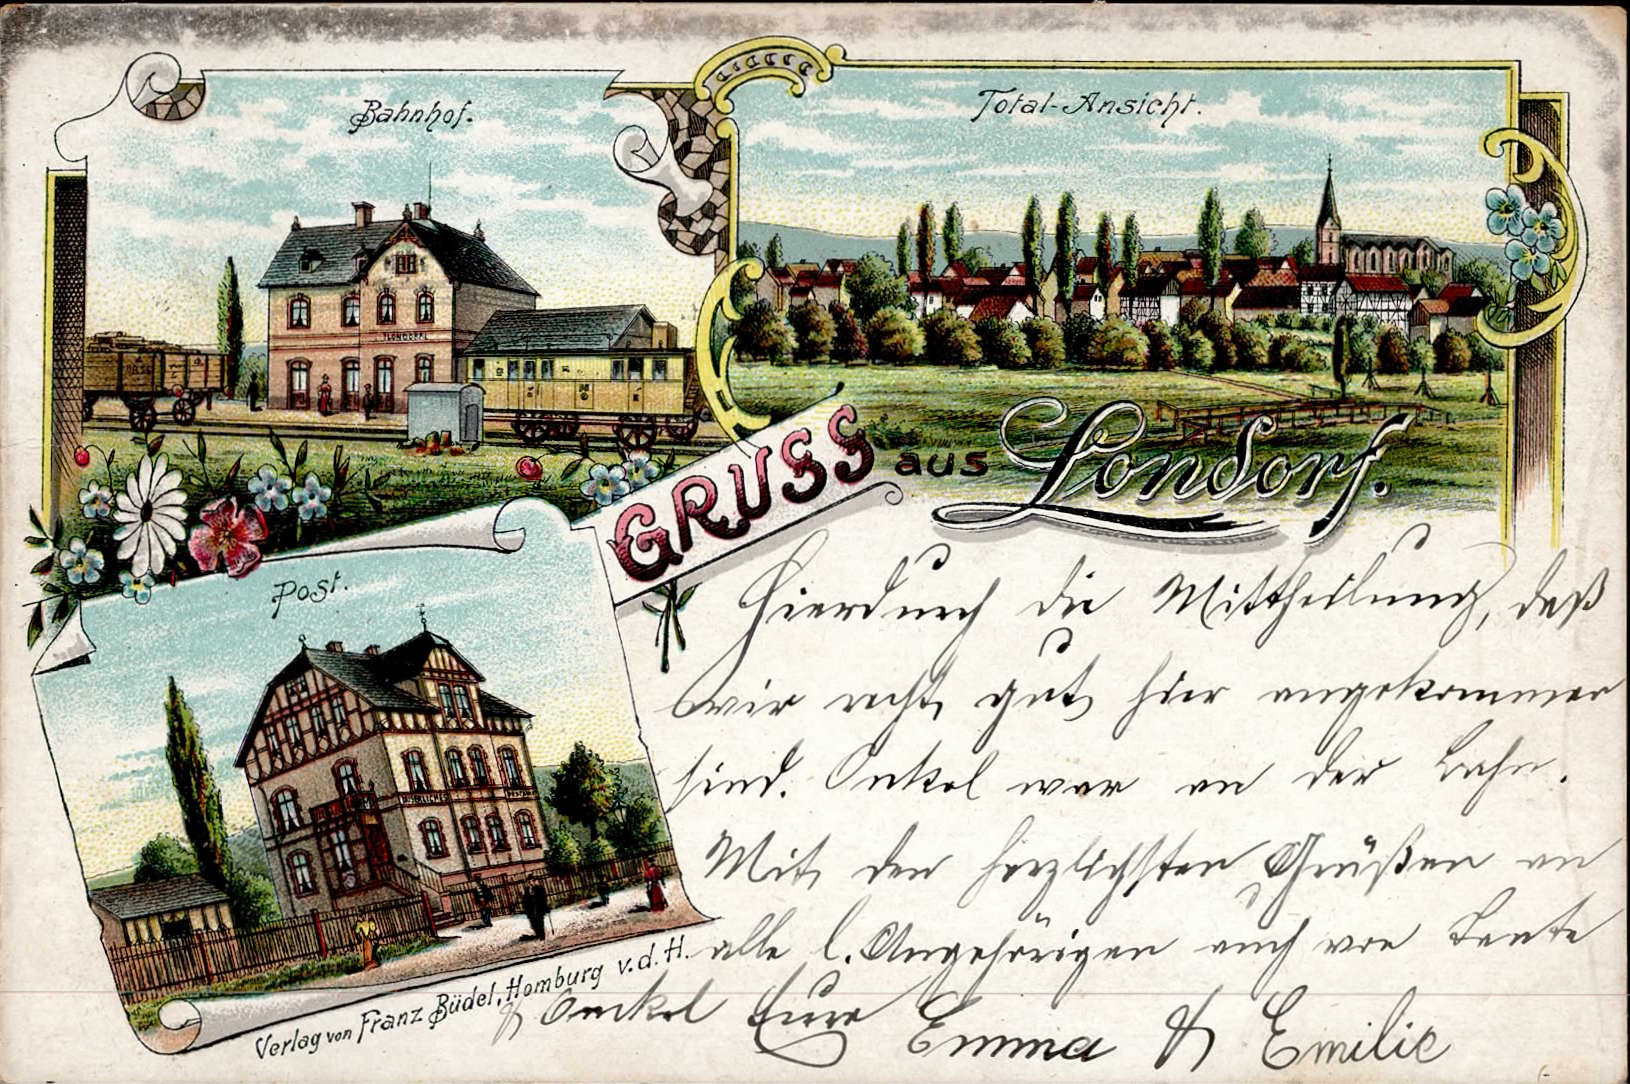 Bahnhof.
Total-Ansicht.
LONDORF
GRUSS aus Londorf.
Post.
Hierdurch die Mittheilung, daß
wir recht gut hier angekommen
sind. Onkel war an der Bahn.
Mit den herzlichsten Grüßen an
alle l. Angehörigen auch von Tante
& Onkel Eure Emma & Emilie
Verlag von Franz Büdel, Homburg v. d. H.